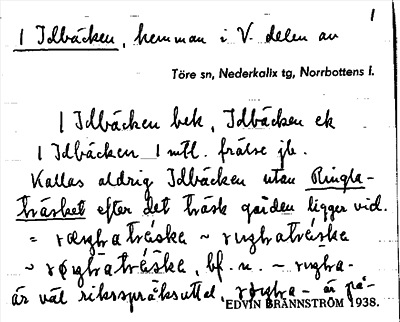 1
1 Idbäcken, hemman i V. delen av
Töre sn, Nederkalix tg, Norrbottens l.
1 Idbäcken bek, Idbäcken ek
1 Idbäcken 1 mtl. frälse jb.
Kallas aldrig Idbäcken utan Ringla-
träsket efter det träsk gården ligger vid.
= ~
~ bf. n. –
är väl riksspråksuttal, är på-
EDVIN BRÄNNSTRÖM 1938.